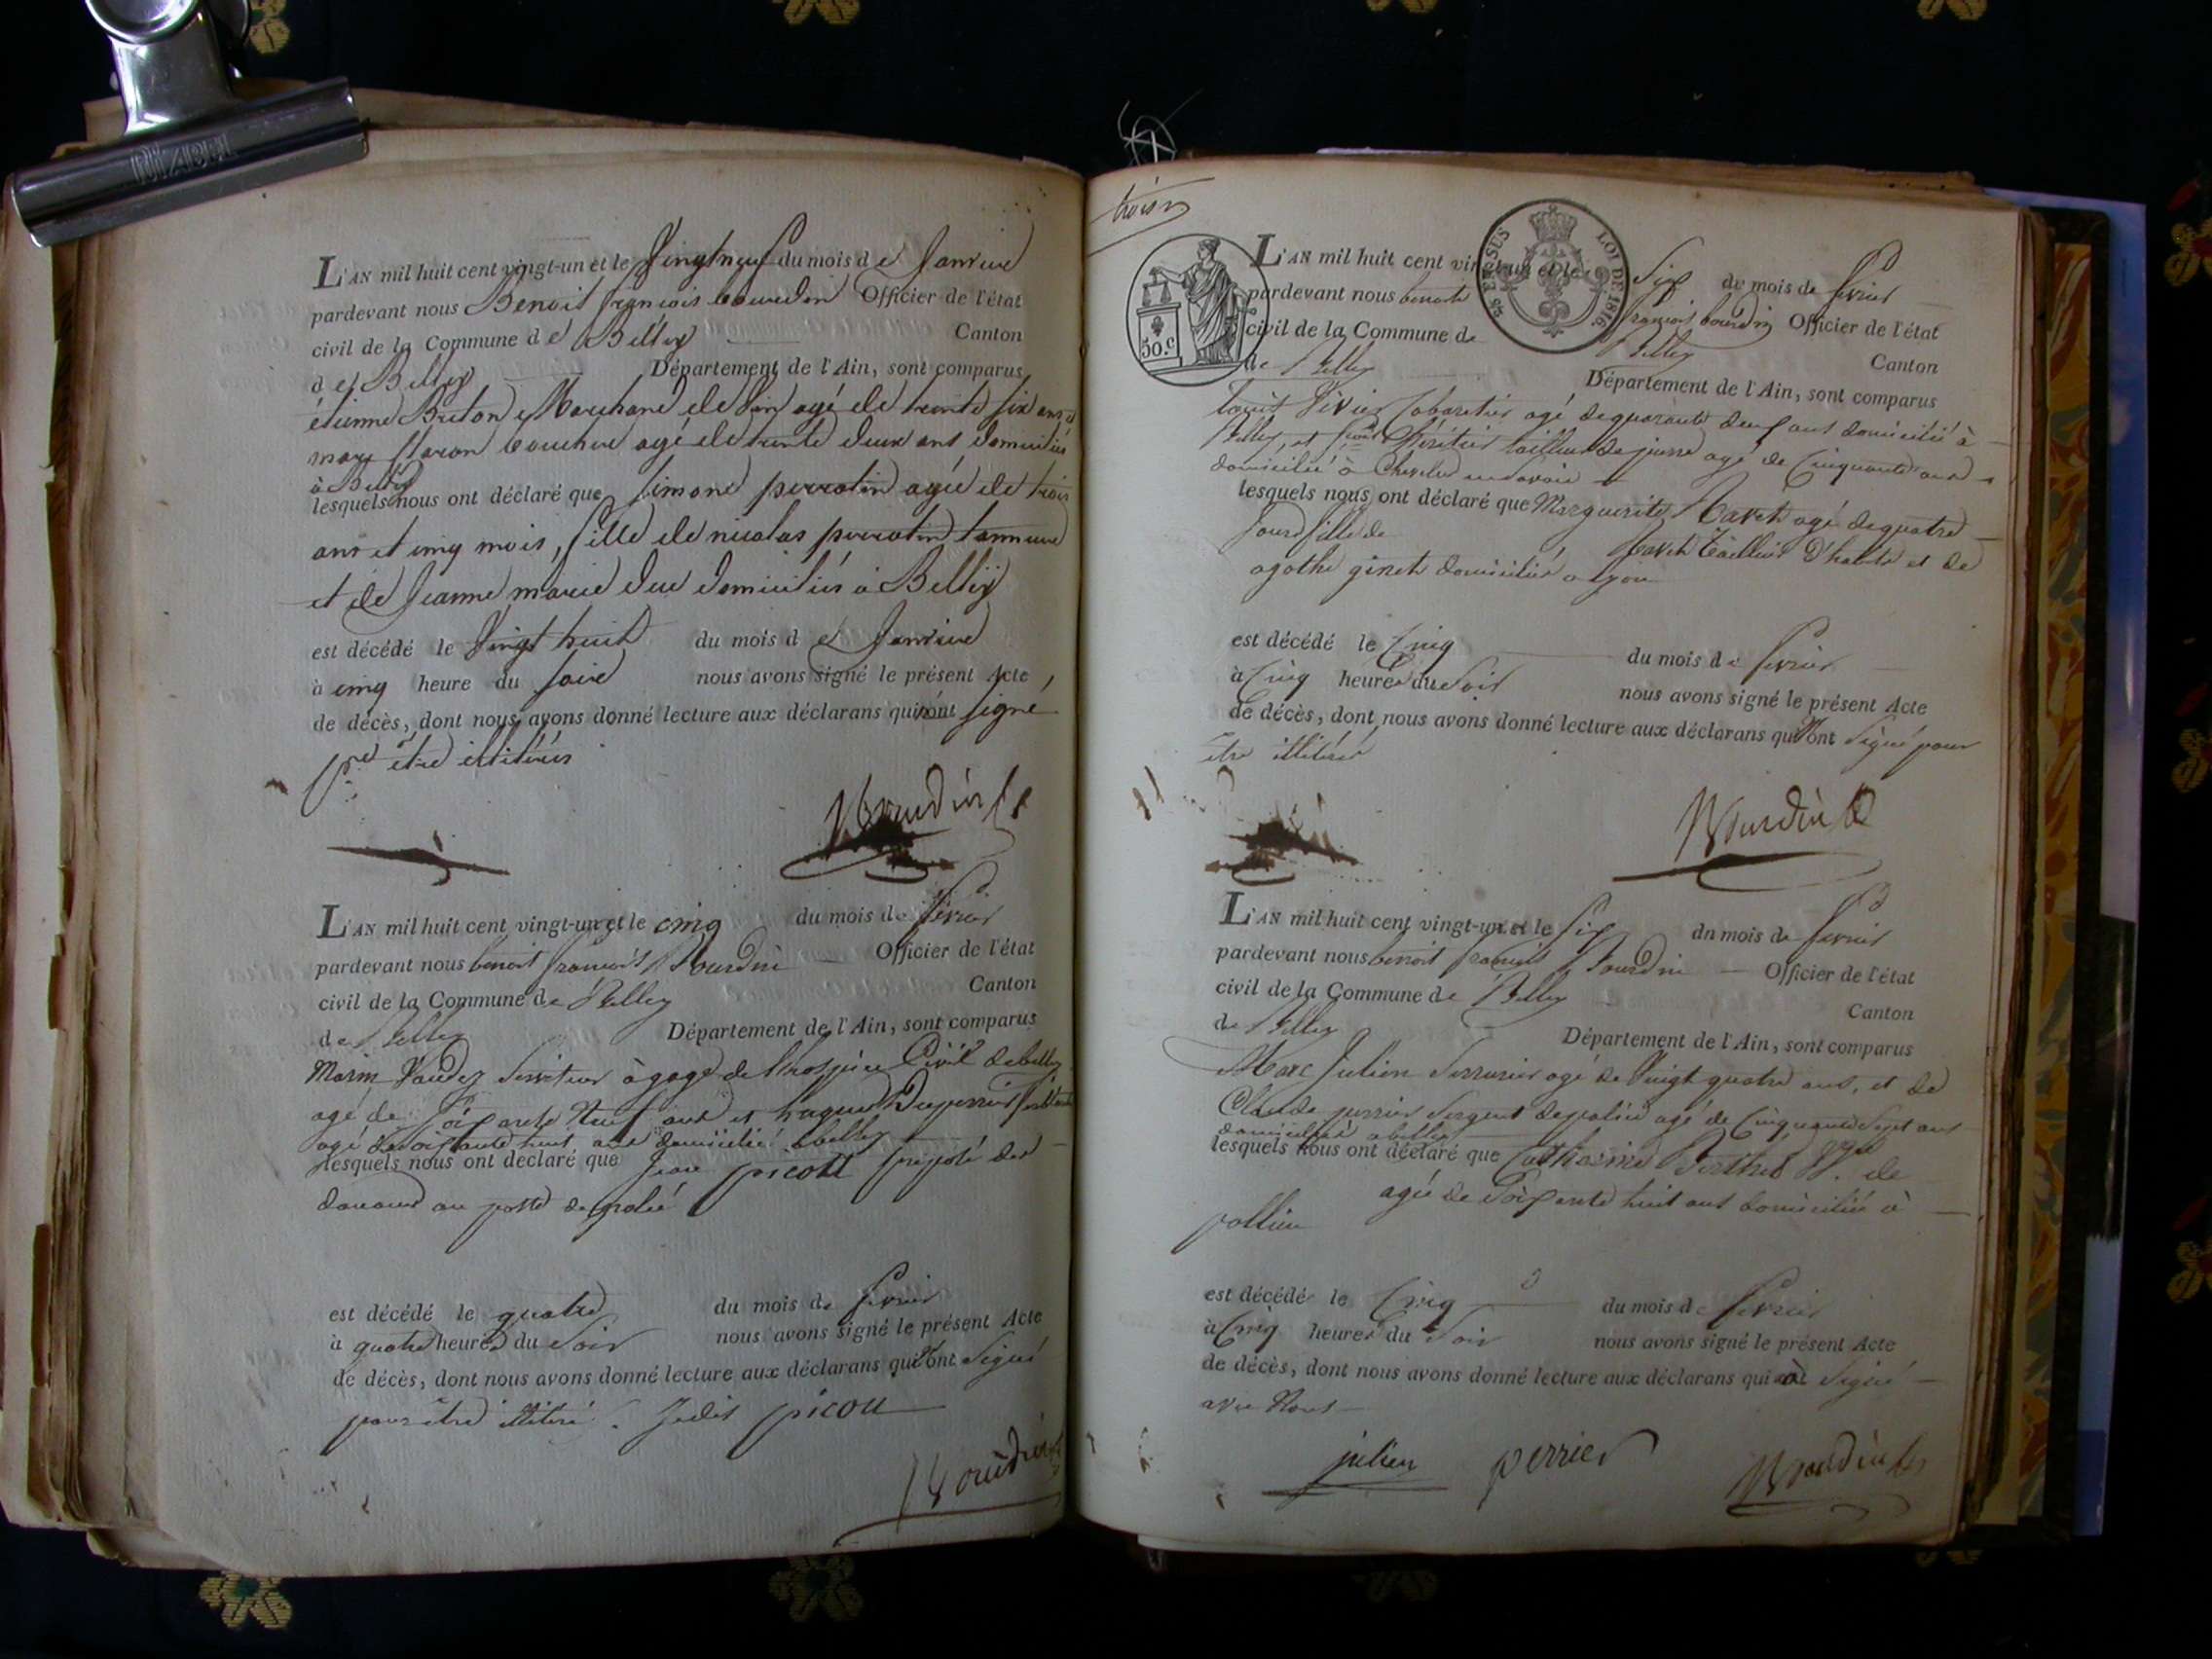 DINACEL
L'AN mil huit cent vingt-un et le Vingt neuf du mois de Janvier
pardevant nous Benoit françois bourdin Officier de l'état
civil de la Commune de Belley Canton
de Belley Département de l'Ain, sont comparus
étienne Breton Marchand de agé de trente six ans
marc boucher agé de trente deux ans domiciliés
à Belley
lesquels nous ont déclaré que Simone perrotin agée de trois
ans et cinq mois, fille de nicolas perrotin tanneur
et de Jeanne marie Duc domiciliés à Belley
est décédé le Vingt huit du mois de Janvier
à cinq heure du soire nous avons signé le présent Acte
de décès, dont nous avons donné lecture aux déclarans qui n'ont signé
pr être illitérés
Bourdin
L'AN mil huit cent vingt-un et le cinq du mois de fevrier
pardevant nous benoit francois Bourdin Officier de l'état
civil de la Commune de Belley Canton
de Belley Département de l'Ain, sont comparus
Marin Vaudez Serviteur à gage de l'hospice Civil de belley
agé de Soixante Neuf ans et
agé de Soixante huit ans domicilié a belley
lesquels nous ont déclaré que Jean picott préposé des
douanes au poste de
est décédé le quatre du mois de fevrier
à quatre heures du Soir nous avons signé le présent Acte
de décès, dont nous avons donné lecture aux déclarans qui N'ont Signé
pour être illitéré. Je dis picou
Bourdin
trois
50.c
LOI DE 1816.
L'AN mil huit cent vingt-un et le Six du mois de fevrier
pardevant nous benoit francois bourdin Officier de l'état
civil de la Commune de Belley Canton
de Belley Département de l'Ain, sont comparus
Louis Vivier Cabaretier agé de quarante Neuf ans domicilié à
Belley, et tailleur de pierre agé de Cinquante ans
domicilié à Chevelu en Savoie
lesquels nous ont déclaré que Marguerite Ravet agé de quatre
Jours fille de Ravet Tailleur D'habit et de
agathe ginet domiciliés a lyon
est décédé le Cinq du mois de fevrier
à Cinq heures du Soir nous avons signé le présent Acte
de décès, dont nous avons donné lecture aux déclarans qui N'ont Signé pour
être illitéré
Bourdin
L'AN mil huit cent vingt-un et le Six du mois de fevrier
pardevant nous benoit francois Bourdin Officier de l'état
civil de la Commune de Belley Canton
de Belley Département de l'Ain, sont comparus
Marc Julien Serrurier agé de Vingt quatre ans, et de
Claude perrier Sergent de police agé de Cinquante Sept ans
domiciliés a belley
lesquels nous ont déclaré que Catherine Berthet Vve de
agée de Soixante huit ans domiciliée à
pollieu
est décédé le Cinq du mois de fevrier
à Cinq heures du Soir nous avons signé le présent Acte
de décès, dont nous avons donné lecture aux déclarans qui Signé
avec Nous
julien perrier Bourdin